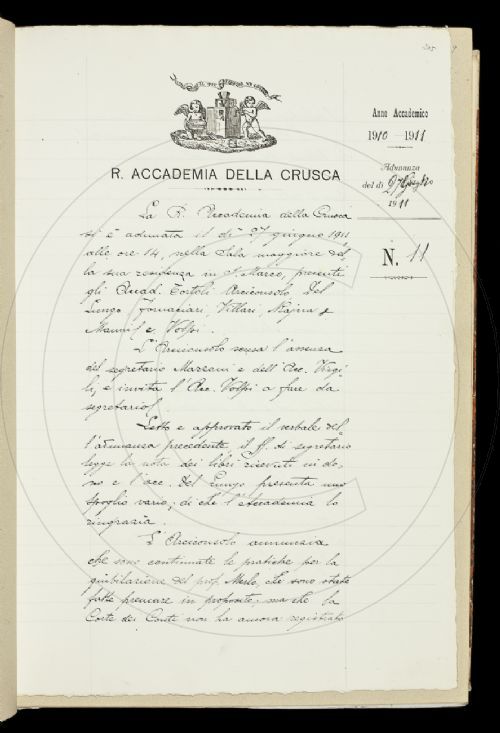 Anno Accademico
1910-1911
Adunanza
del dì 27 Giugno
1911
N. 11
R. ACCADEMIA DELLA CRUSCA
La R. Accademia della Crusca
si è adunata il dì 27 giugno 1911,
alle ore 14, nella Sala maggiore del-
la sua residenza in S. Marco, presenti
gli Accad. Tortoli Arciconsolo, Del
Lungo, Fornaciari, Villari, Rajna,
Mazzoni e Volpi.
L'Arciconsolo scusa l'assenza
del segretario Mazzoni e dell'Acc.
e invita l'Acc. Volpi a fare da
segretario.
Letto e approvato il verbale del-
l'adunanza precedente, il ff. di segretario
legge la nota dei libri ricevuti in do-
no e l'acc. Del Lungo presenta uno
spoglio vario; di che l'Accademia lo
ringrazia.
L'Arciconsolo annunzia
che sono continuate le pratiche per la
giubilazione del prof. Merlo, che sono state
fatte premure in proposito; ma che la
Corte dei Conti non ha ancora registrato